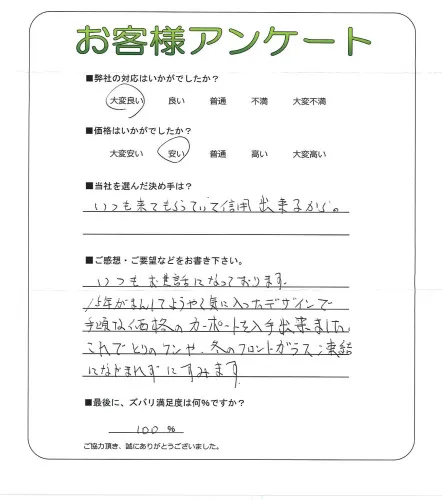 お客様アンケート
■弊社の対応はいかがでしたか?
大変良い 良い 普通 不満 大変不満
■価格はいかがでしたか?
大変安い 安い 普通 高い 大変高い
■当社を選んだ決め手は?
いつも来てもらっていて信用出来るから。
■ご感想・ご要望などをお書き下さい。
いつもお世話になっております。
15年がまんしてようやく気に入ったデザインで
手頃な価格のカーポートを入手出来ました
これでとりのフンや、冬のフロントガラス凍結
になやまれずにすみます
■最後に、ズバリ満足度は何%ですか?
100 %
ご協力頂き、誠にありがとうございました。